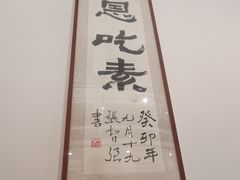 恩吃素
癸卯年
九月十九
張智強
書